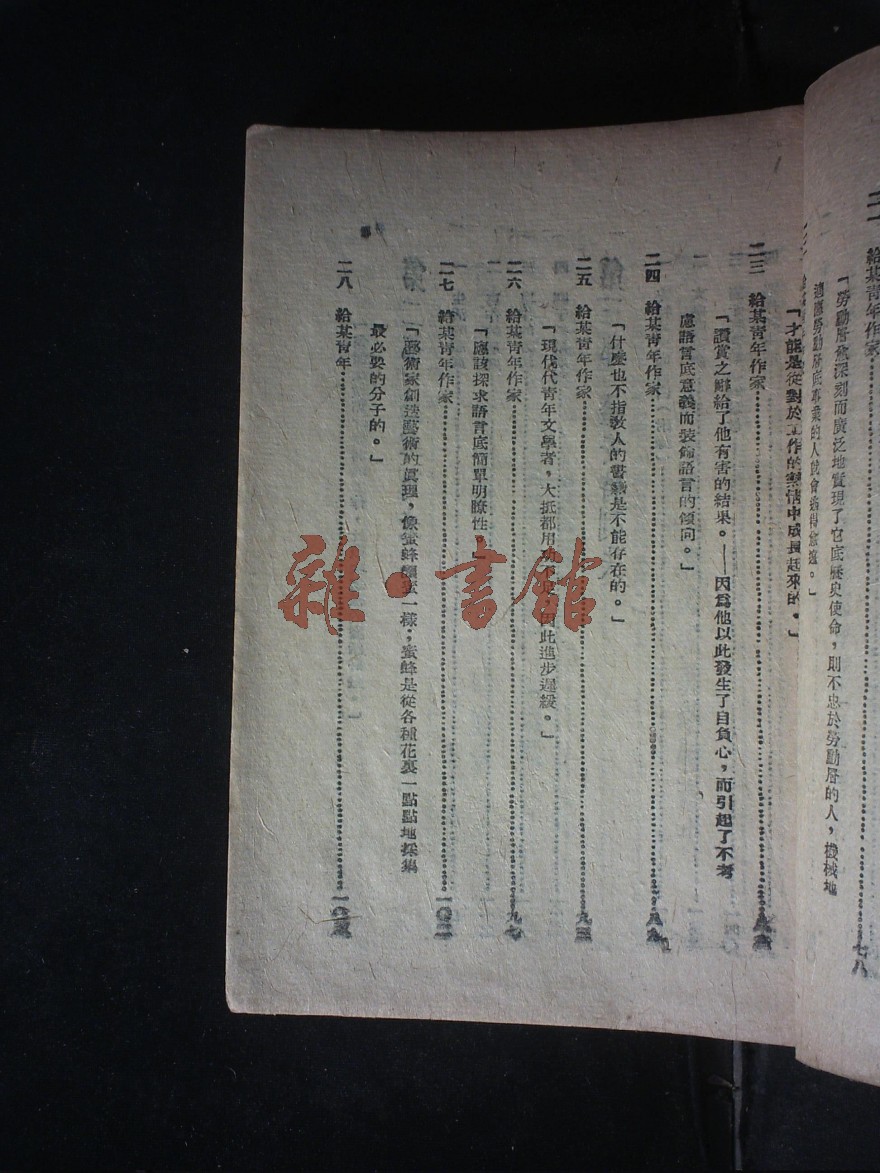 二一 給某青年作家……七八
「勞動層愈深刻而廣泛地實現了它底歷史使命，則不忠於勞動層的人，機械地
「才能是從對於工作的熱情中成長起來的。」
二三 給某青年作家……
「讚賞之辭給了他有害的結果。——因爲他以此發生了自負心，而引起了不考
慮語言底意義而裝飾語言的傾向。」
二四 給某青年作家……八九
二五 給某青年作家……九三
「什麼也不指敎人的書籍是不能存在的。」
二六 給某青年作家……九七
「現代代青年文學者，大抵都用功不 此進步遲緩。」
二七 給某青年作家……一〇二
「應該探求語言底簡單明瞭性。」
二八 給某青年……
「藝術家創造藝術的眞理，像蜜蜂釀蜜一樣；蜜蜂是從各種花裏一點點地採集
最必要的分子的。」
雜·書館